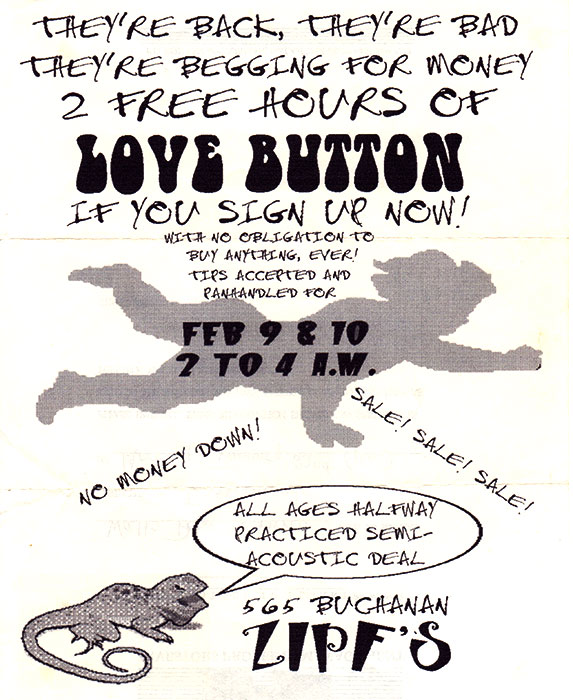 THEY'RE BACK, THEY'RE BAD
THEY'RE BEGGING FOR MONEY
2 FREE HOURS OF
LOVE BUTTON
IF YOU SIGN UP NOW!
WITH NO OBLIGATION TO
BUY ANYTHING, EVER!
TIPS ACCEPTED AND
PANHANDLED FOR
FEB 9 & 10
2 TO 4 A.M.
SALE! SALE! SALE!
NO MONEY DOWN!
ALL AGES HALFWAY
PRACTICED SEMI-
ACOUSTIC DEAL
565 BUCHANAN
ZIPF'S